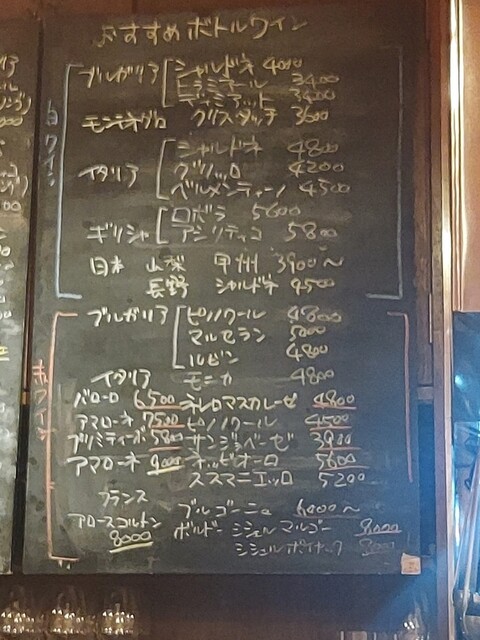 おすすめボトルワイン
白ワイン
ブルガリア シャルドネ 4000
3400
ディミアット 3400
モンテネグロ クリスタッチ 3600
シャルドネ 4800
イタリア グリッロ 4200
ベルメンティーノ 4500
ロボラ 5600
ギリシャ アシリティコ 5800
日本 山梨 甲州 3900〜
長野 シャルドネ 4500
赤ワイン
ブルガリア ピノノワール 4800
マルセラン 5000
ルビン 4800
イタリア モニカ 4800
バローロ 6500 ネレロマスカレーゼ 4800
アマローネ 7500 ピノノワール 4500
プリミティーボ 5800 サンジョベーゼ 3900
アマローネ 9000 ネッビオーロ 5600
ススマニエッロ 5200
フランス
ブルゴーニュ 6000〜
アロースコルトン ボルドー ミシェル マルゴー 8000
8000 ミシェル ポイヤック 8000